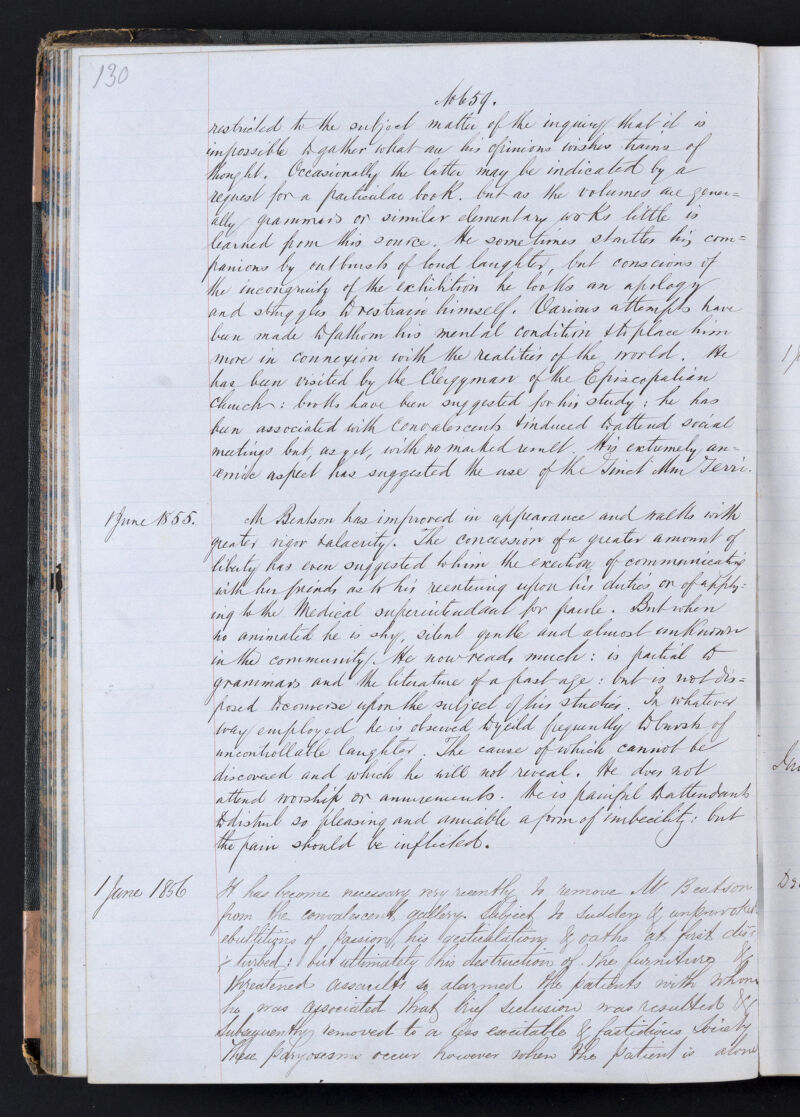 130
No 659.
restricted to the subject matter of the inquiry that it is
impossible to gather what are his opinions wishes trains of
thought. Occasionally the latter may be indicated by a
request for a particular book. but as the volumes are gener=
ally grammars or similar elementary works little is
learned from this source. He sometimes startles his com=
panions by outbursts of loud laughter, but conscious of
the incongruity of the exhibition he looks an apology
and struggles to restrain himself. Various attempts have
been made to fathom his mental condition & to place him
more in connexion with the realities of the world. He
has been visited by the Clergyman of the Episcopalian
Church: books have been suggested for his study: he has
been associated with convalescents & induced to attend social
meetings but, as yet, with no marked result. His extremely an=
œmic aspect has suggested the use of the Tinct Mur Ferri.
1 June 1855.
Mr Beatson has improved in appearance and walks with
greater vigor & alacrity. The concession of a greater amount of
liberty has even suggested to him the exertion of communicating
with her friends as to his reentering upon his duties or of apply=
ing to the Medical superintendant for parole. But when
so animated he is shy, silent gentle and almost unknown
in the community. He now reads much: is partial to
grammars and the literature of a past age: but is not dis=
posed to converse upon the subject of his studies. In whatever
way employed he is observed to yeild frequently to bursts of
uncontrollable laughter. The cause of which cannot be
discovered and which he will not reveal. He does not
attend worship or amusements. He is painful to attendants
to disturb so pleasing and amiable a form of imbecility: but
the pain should be inflicted.
1 June 1856
It has become necessary very recently to remove Mr Beatson
from the convalescent gallery. Subject to sudden & unprovoked
ebullitions of passion, his gesticulations & oaths at first dis=
turbed: but ultimately his destruction of the furniture &
threatened assaults so alarmed the patients with whom
he was associated that brief seclusion was resulted &
subsequently removed to a less excitable & fastidious society
These paryoxesms occur however when the patient is alone